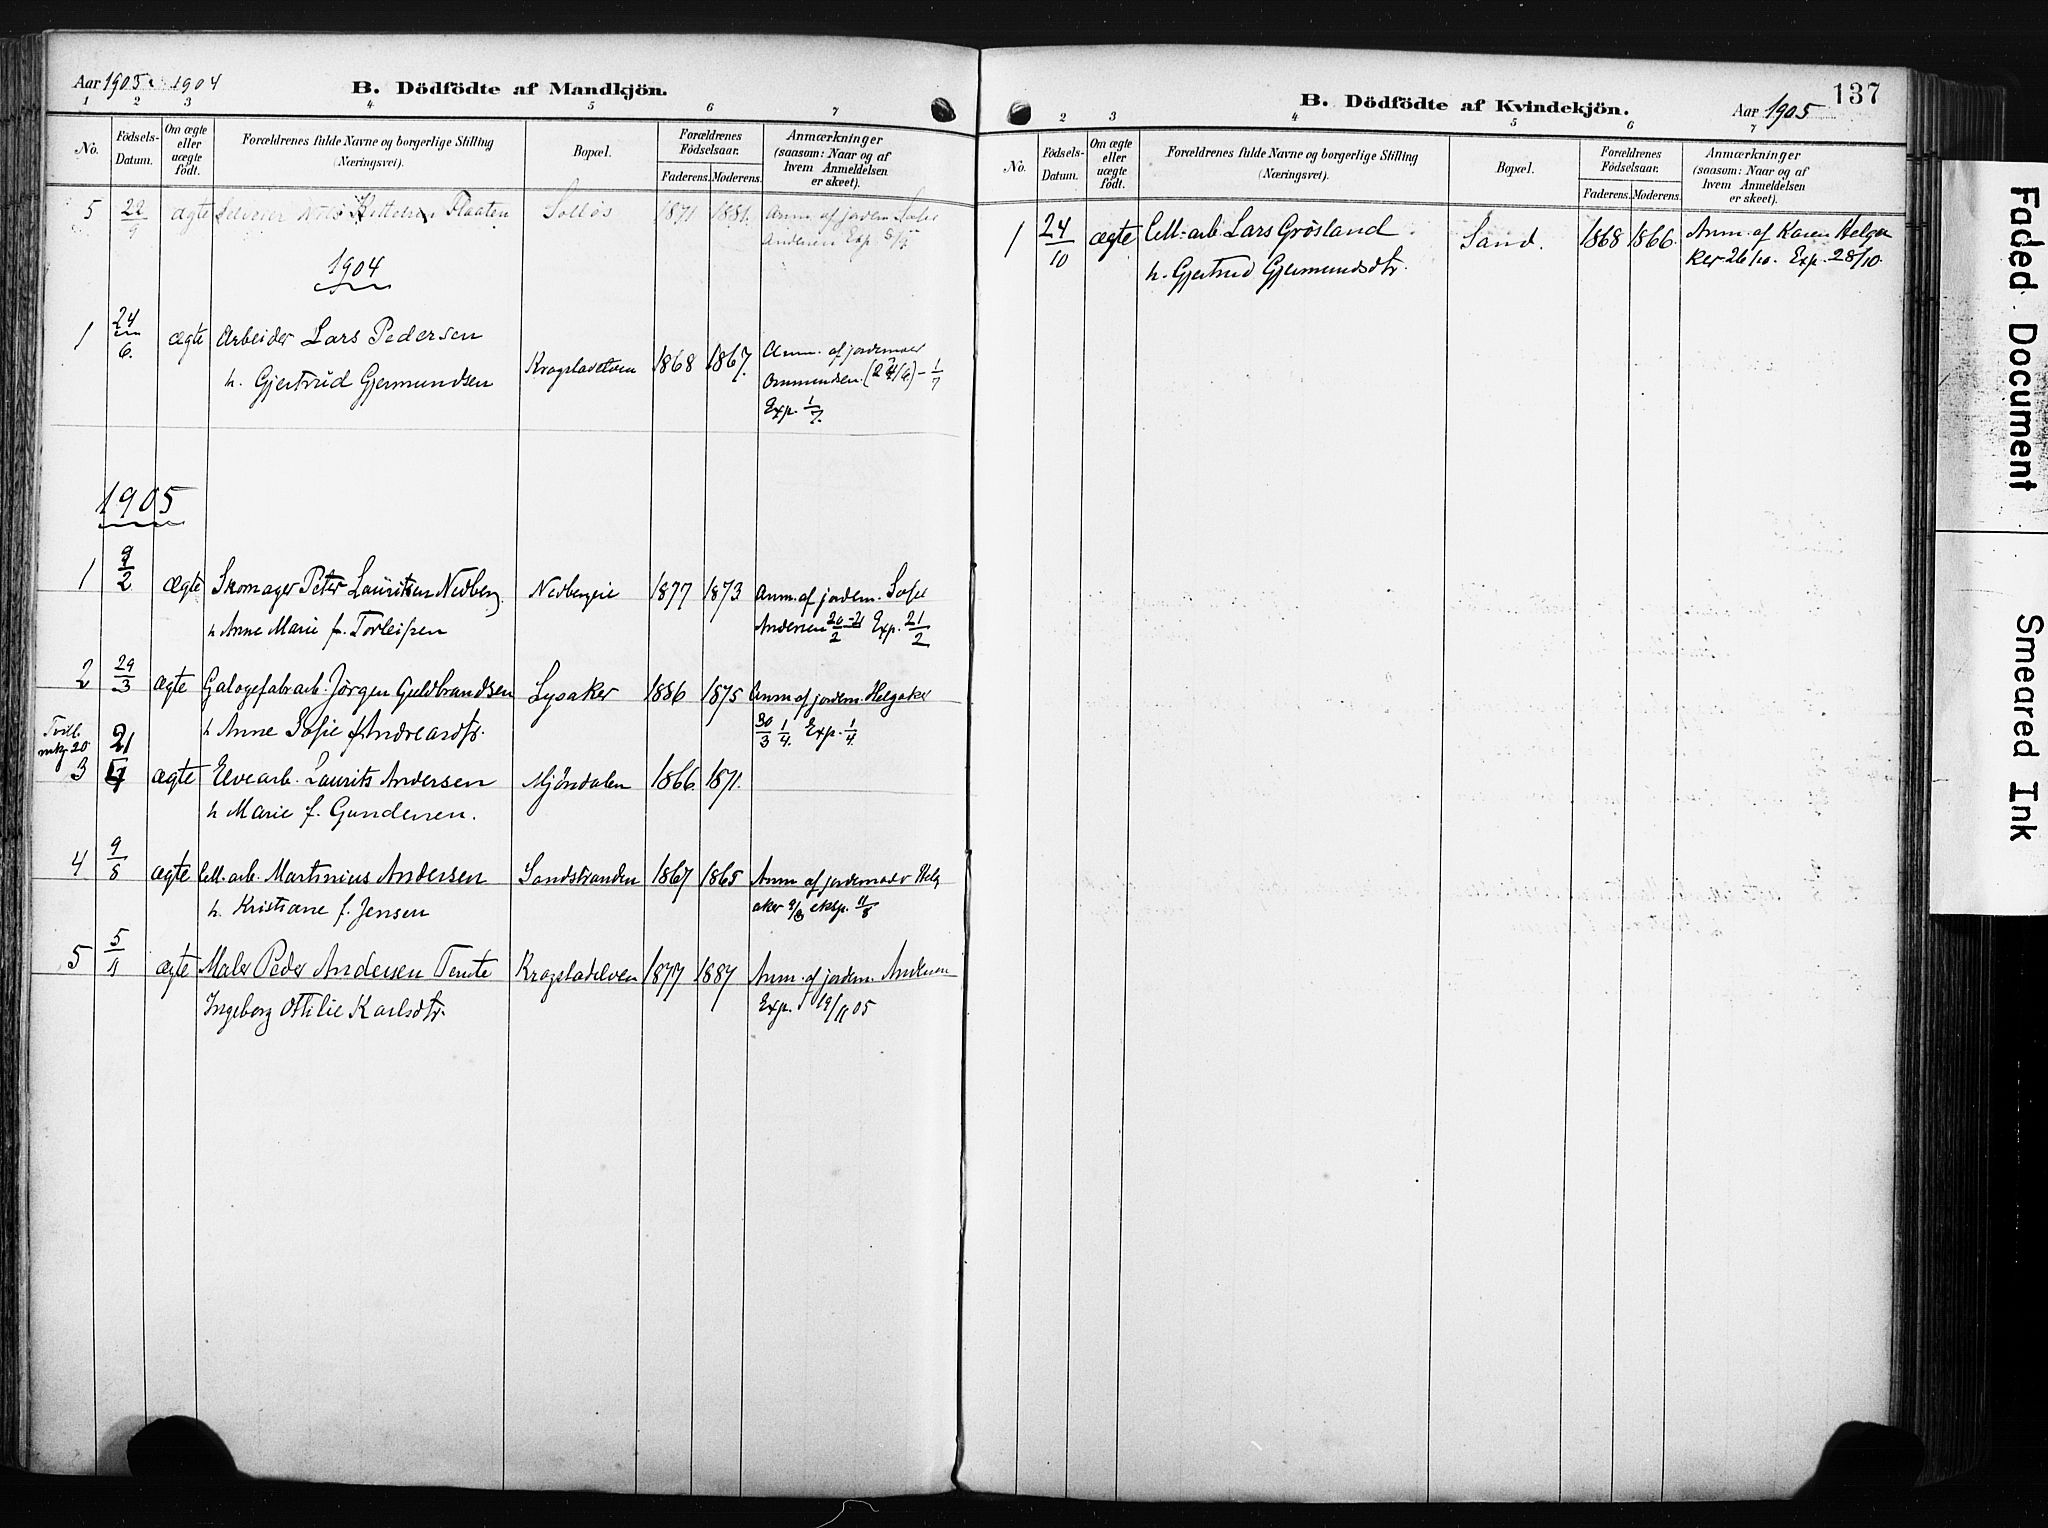 Aar 1903. 1904
B. Dödfödte af Mandkjön.
1 2 3 4 5 6 7
No.
Födsels-Datum.
Om ægte eller uægte født.
Forældrenes fulde Navne og borgerlige Stilling (Næringsvei).
Bopæl.
Forældrenes Födselsaar.
Faderens. Moderens.
Anmærkninger (saasom: Naar og af hvem Anmeldelsen er skeet).
5 22/9 ægte Nils Kittelsen Plaaten Solløs 1871 1881. Anm. af jordem. Sofie
Andersen Exp.
1904
1 24/6. ægte Arbeider Lars Pedersen
h. Gjertrud Gjermundsen Krogstadelven 1868 1867. Anm. af jordemoer
Ommundsen. (24/6) - 1/7
Exp. 1/7.
1905
1 9/2 ægte Skomager Peter Lauritsen Nedberg. Nedbergeie 1877 1873 Anm. af jordem. Sofie
h Anne Marie f. Torleifsen Andersen 20-21/2 Exp. 21/2
2 29/3 ægte Galogefabrarb. Jørgen Guldbrandsen Lysaker 1886 1875 Anm af jordem. Helgaker
h Anne Sofie f Andreasdtr. 30/3 1/4. Exp. 1/4.
Tvill. mkj. 20
3 21 ægte Elvearb. Laurits Andersen Mjöndalen 1866 1871.
h Marie f. Gundersen.
4 9/8 ægte Cell. arb. Martinius Andersen Sandstranden 1867 1865 Anm af jordemoder Helg
h. Kristiane f. Jensen aker 9/8 eksp. 11/8
5 5/11 ægte Maler Peder Andersen Temte Krogstadelven 1877 1887 Anm. af jordem. Andersen
Ingeborg Otilie Karlsdtr. Exp. 19/11 05
137
B. Dödfödte af Kvindekjön.
Aar 1905
2 3 4 5 6 7
No.
Födsels-Datum.
Om ægte eller uægte födt.
Forældrenes fulde Navne og borgerlige Stilling (Næringsvei).
Bopæl.
Forældrenes Födselsaar.
Faderens. Moderens.
Anmærkninger (saasom: Naar og af hvem Anmeldelsen er skeet).
1 24/10 ægte Cell-arb. Lars Grösland Sand. 1868 1866. Anm. af Karen Helga
h. Gjertrud Gjermundsdtr. ker 26/10. Exp. 28/10.
Faded Document
Smeared Ink